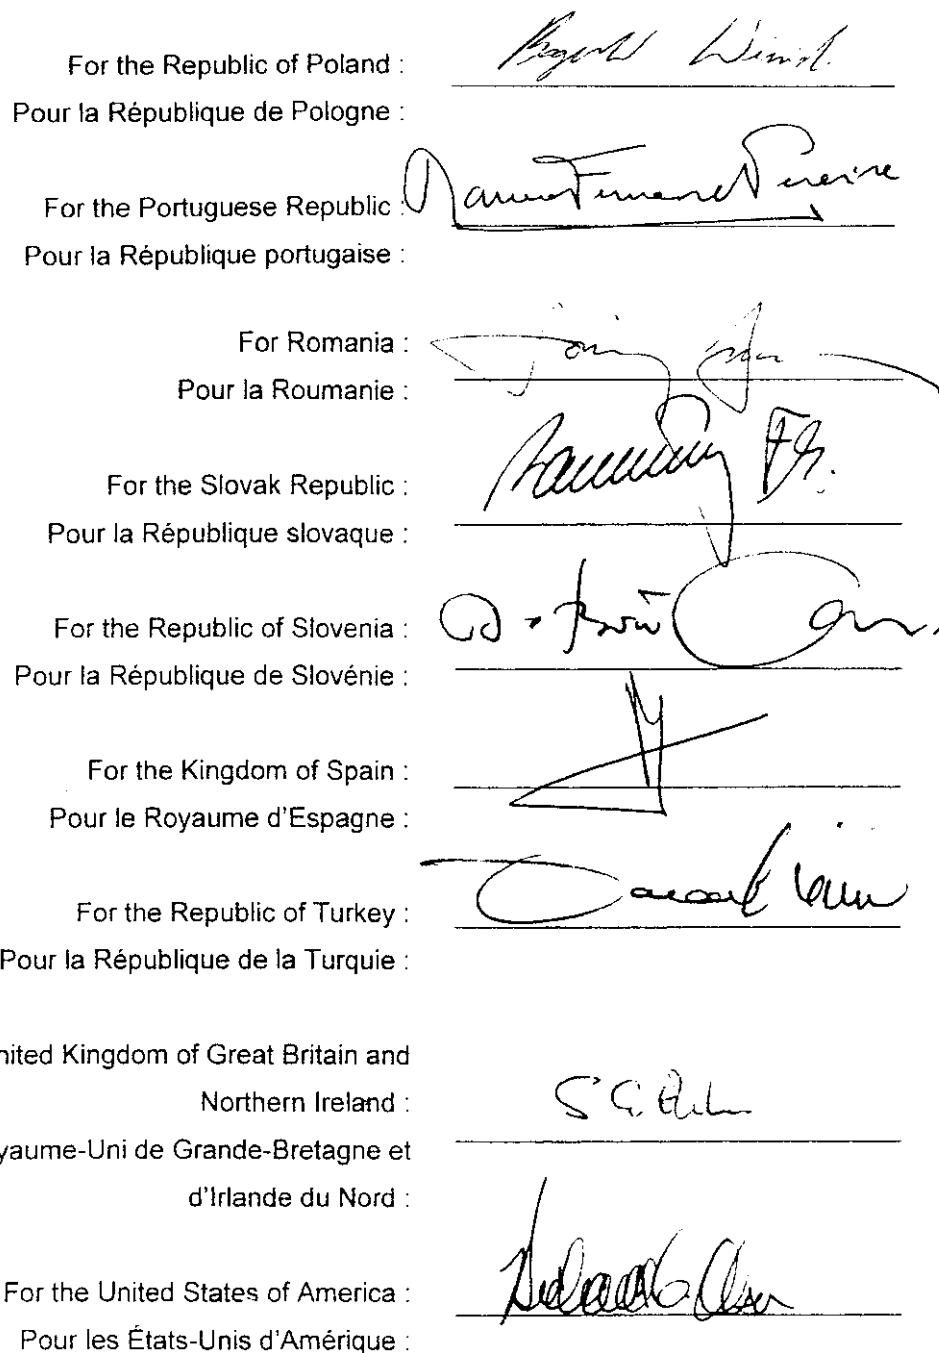 For the Republic of Poland :
Pour la République de Pologne :
For the Portuguese Republic :
Pour la République portugaise :
For Romania :
Pour la Roumanie :
For the Slovak Republic :
Pour la République slovaque :
For the Republic of Slovenia :
Pour la République de Slovénie :
For the Kingdom of Spain :
Pour le Royaume d'Espagne :
For the Republic of Turkey :
Pour la République de la Turquie :
nited Kingdom of Great Britain and
Northern Ireland :
yaume-Uni de Grande-Bretagne et
d'Irlande du Nord :
For the United States of America :
Pour les États-Unis d'Amérique :